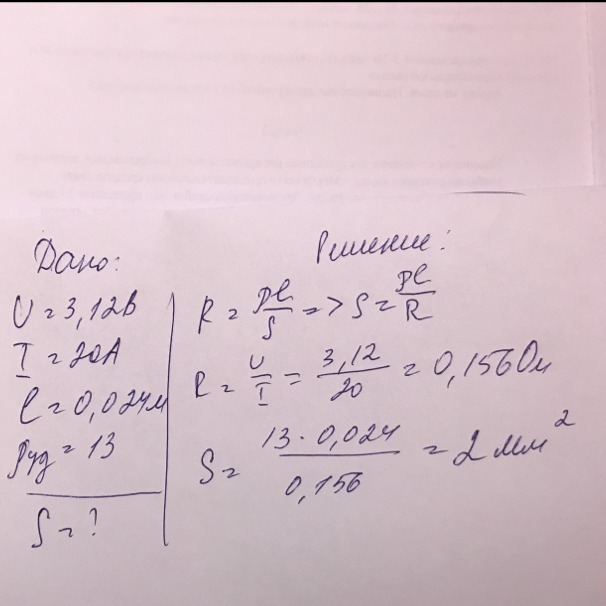 Дано:
U = 3,12В
I = 20А
l = 0,024м
ρуд = 13
S = ?
Решение:
R = ρl/S => S = ρl/R
R = U/I = 3,12/20 = 0,156Ом
S = 13 · 0,024/0,156 = 2 мм²